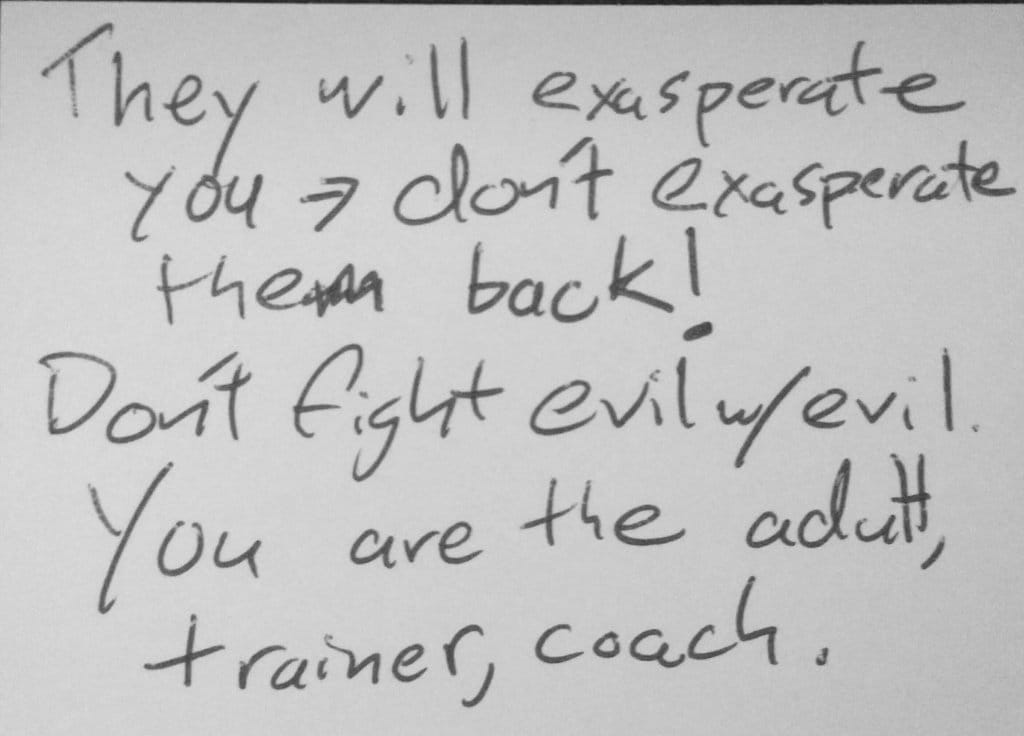 They will exasperate
you → don't exasperate
them back!
Don't fight evil w/evil.
You are the adult,
trainer, coach.